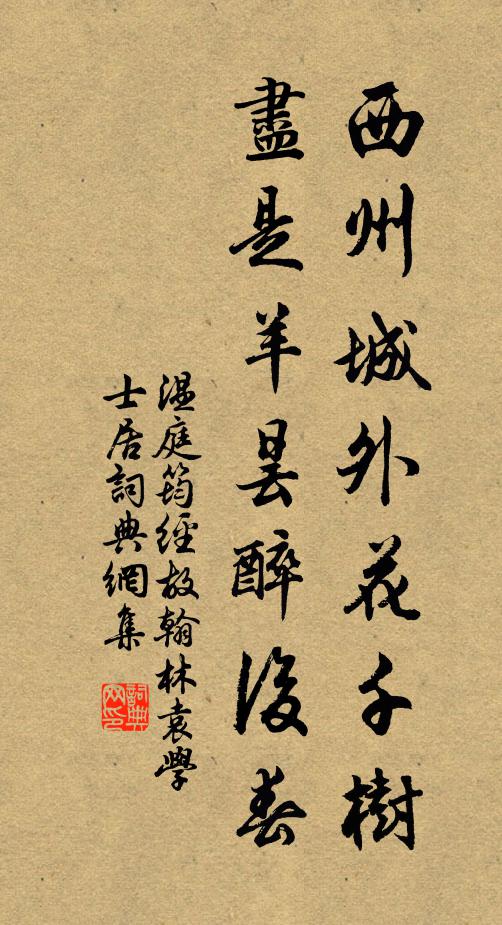 西州城外花千樹
盡是羊曇醉後春
溫庭筠經故翰林袁學
士居詞典網集
詞典
网印